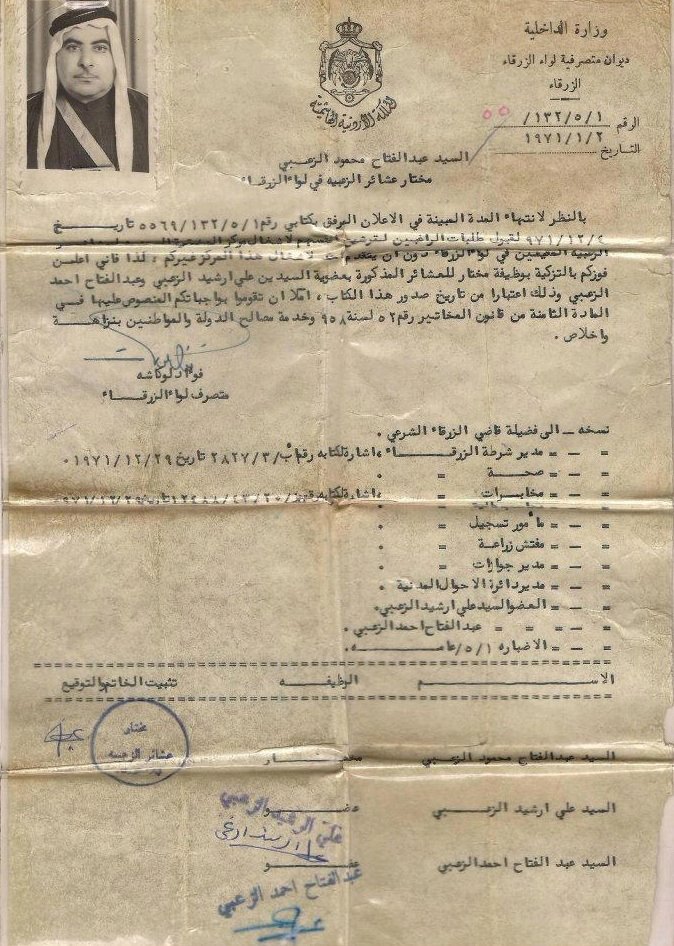 وزارة الداخلية
ديوان متصرفية لواء الزرقاء
الزرقاء
المملكة الأردنية الهاشمية
الرقم ١٣٢/٥/١/ ٥٥
التاريخ ١٩٧١/١/٢
السيد عبدالفتاح محمود الزعبي
مختار عشائر الزعبيه في لواء الزرقاء
بالنظر لانتهاء المدة المبينة في الاعلان المرفق بكتابي رقم ١٣٢/٥/١/٥٥٦٩ تاريخ
لقبول طلبات الراغبين
الزعبية المقيمين في لواء الزرقاء دون ان يتقدم لاشغال هذا المركز غيركم ، لذا فاني اعلن
فوزكم بالتزكية بوظيفة مختار للعشائر المذكورة بعضوية السيدين علي ارشيد الزعبي وعبدالفتاح احمد
الزعبي وذلك اعتبارا من تاريخ صدور هذا الكتاب ، املا ان تقوموا بواجباتكم المنصوص عليها في
المادة الثامنة من قانون المخاتير رقم ٥٢ لسنة ٩٥٨ وخدمة مصالح الدولة والمواطنين بنزاهة
واخلاص .
متصرف لواء الزرقاء
نسخه – الى فضيلة قاضي الزرقاء الشرعي .
= – = مدير شرطة الزرقاء ، اشارة لكتابه رقم ٢٨٢٧/٣/ تاريخ ١٩٧١/١٢/٢٩ ٠
= – = صحة = ،
= – = مخابرات = ، اشارة لكتابه
= – = مأمور تسجيل = ،
= – = مفتش زراعة = ،
= – = مدير جوازات = ،
= – = مدير دائرة الاحوال المدنية ،
= – = العضو السيد علي ارشيد الزعبي.
= – = = = عبدالفتاح احمد الزعبي .
= – = الاضباره ٥/١/ عامه .
الاسم الوظيفه تثبيت الخاتم والتوقيع
السيد عبدالفتاح محمود الزعبي مختار
مختار
عشائر الزعبيه
السيد علي ارشيد الزعبي عضو
السيد عبد الفتاح احمد الزعبي عضو
عبدالفتاح احمد الزعبي